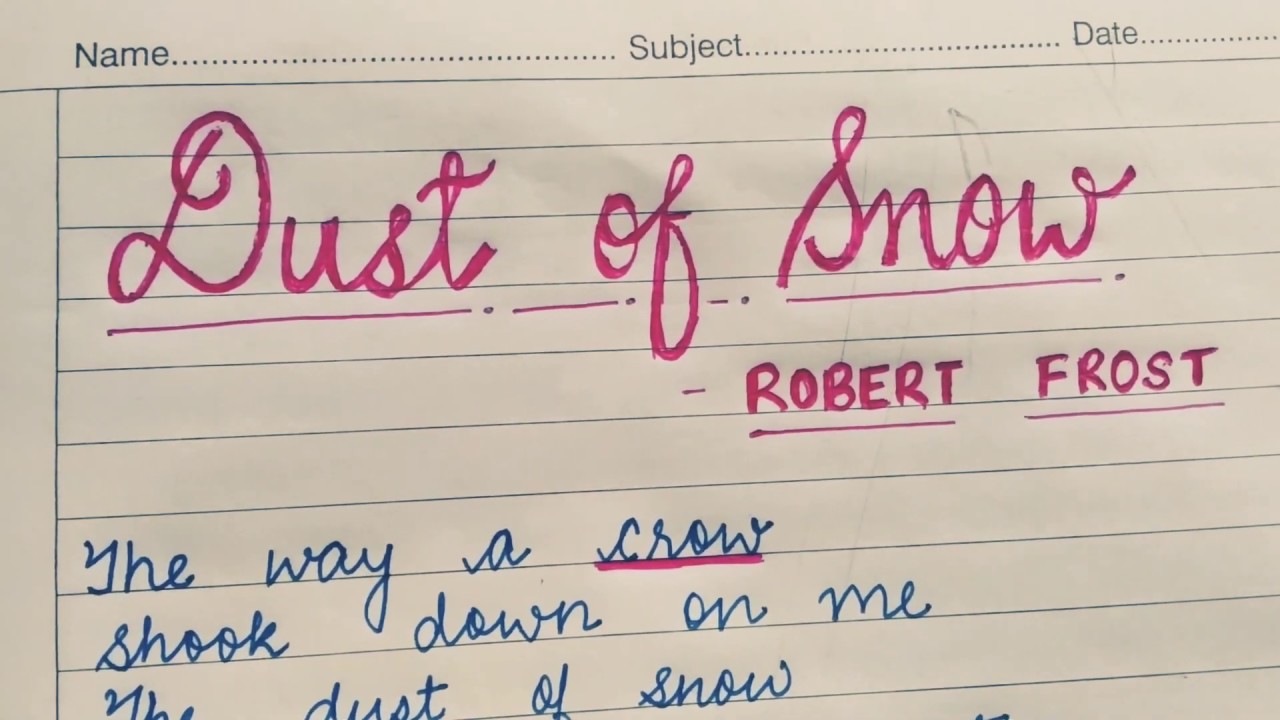 Name.......................................... Subject.................................. Date...............
Dust of Snow
- ROBERT FROST
The way a crow
shook down on me
The dust of snow